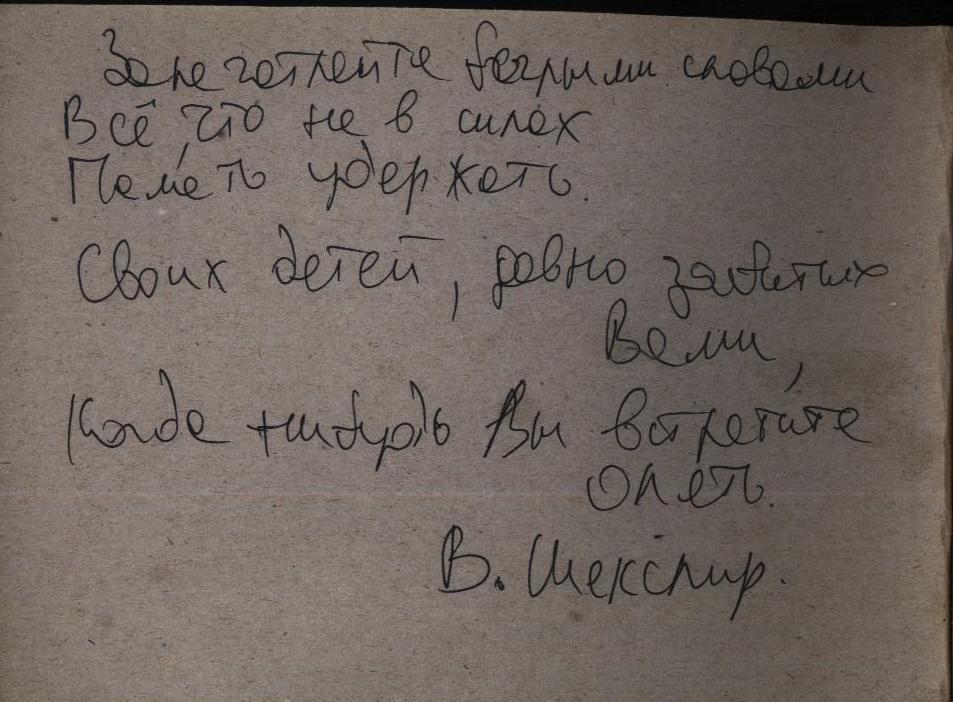 Запечатлейте беглыми словами
Всё, что не в силах
Память удержать.
Своих детей, давно забытых
Вами,
Когда нибудь Вы встретите
опять.
В. Шекспир.